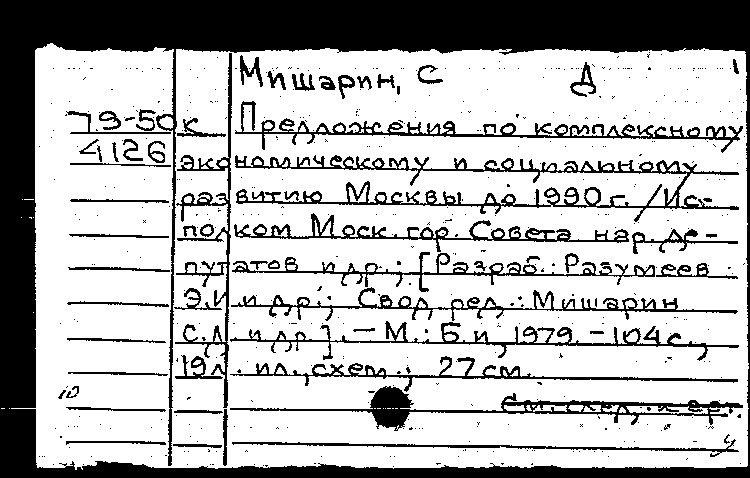 Мишарин, С Д 1
79-50к Предложения по комплексному
4126 экономическому и социальному
развитию Москвы до 1990 г. /Ис-
полком Моск. гор. Совета нар. де-
путатов и др.; [Разраб.: Разумеев
Э.И и др.; Свод. ред.: Мишарин
С.Д. и др.]. – М.: Б.и, 1979. – 104 с.,
19 л. ил., схем.; 27 см.
10